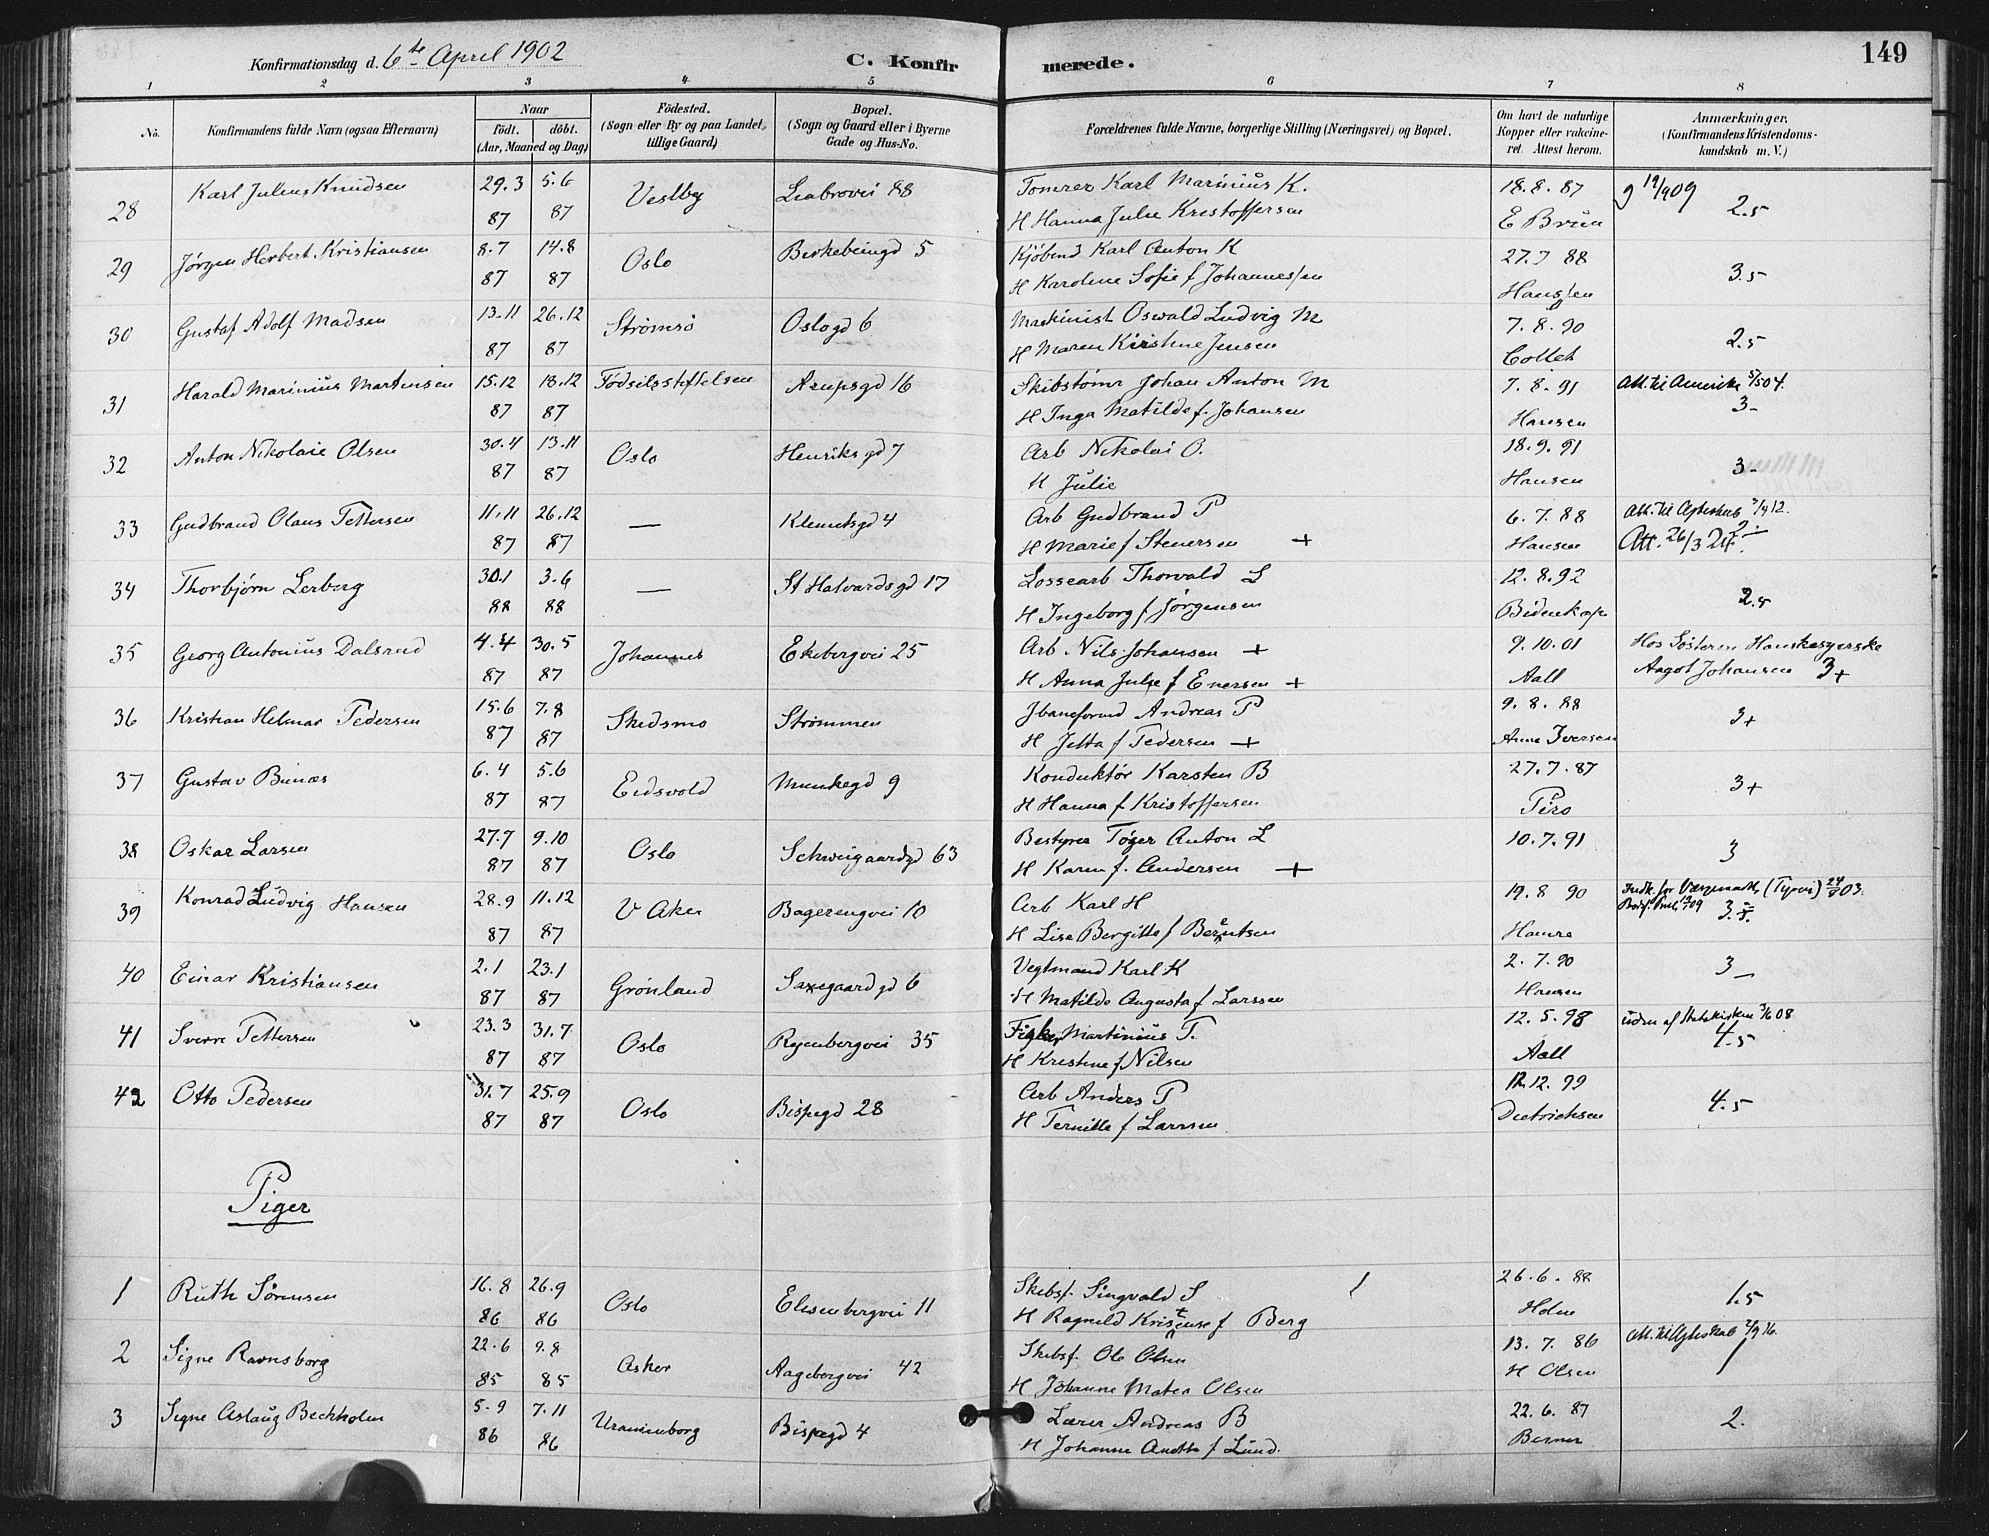 149
Konfirmationsdag d. 6te April 1902 C. Konfirmerede.
1 2 3 4 5 6 7 8
No. Konfirmandens fulde Navn (ogsaa Efternavn) Naar födt. döbt. (Aar, Maaned og Dag) Födested. (Sogn eller By og paa Landet tillige Gaard) Bopæl. (Sogn og Gaard eller i Byerne Gade og Hus-No. Forældrenes fulde Navne, borgerlige Stilling (Næringsvei) og Bopæl. Om havt de naturlige Kopper eller vakcineret. Attest herom. Anmerkninger, (Konfirmandens Kristendomskundskab m. V.)
28 Karl Julius Knudsen 29.3 5.6 Vestby Liabrovei 88 Tomrer Karl Marinius K. 18.8.87 2.5
87 87 H Hanna Julie Kristoffersen E Bruun
29 Jørgen Herbert Kristiansen 8.7 14.8 Oslo Birkebeinergd 5 Kjöbmd Karl Anton K 27.7 88 3.5
87 87 H Karoline Sofie f Johannessen Hanssen
30 Gustaf Adolf Madsen 13.11 26.12 Strömsö Oslogd 6 Maskinist Oswald Ludvig M 7.8.90 2.5
87 87 H Maren Kirstine Jensen Collet
31 Harald Marinius Martinsen 15.12 18.12 Födselsstiftelsen Arupsgd 16 Skibstömr Johan Anton M 7.8.91 Att. til Amerika 5/5 04.
87 87 H Inga Matilde f. Johansen Hansen 3-
32 Anton Nikolaie Olsen 30.4 13.11 Oslo Henriksgd 7 Arb Nikolai O. 18.9.91 3-
87 87 H Julie Hansen
33 Gudbrand Olaus Pettersen 11.11 26.12 — Klemetsgd 4 Arb Gudbrand P 6.7.88 Att. til Ægteskab 3/4 12.
87 87 H Marie f Stenersen + Hansen Att. 26/3 24.
34 Thorbjörn Lerberg 30.1 3.6 — St Halvardsgd 17 Lossearb Thorvald L 12.8.92 2.5
88 88 H Ingeborg f Jörgensen Bidenkap
35 Georg Antonius Dalsrud 4.4 30.5 Johannes Ekebergvei 25 Arb Nils Johansen + 9.10.01 Hos Söstern Hanskesyerske
87 87 H Anna Julie f Enersen + Aall Aagot Johansen 3+
36 Kristian Helmar Pedersen 15.6 7.8 Skedsmo Strömmen Jbaneformd Andreas P 9.8.88 3+
87 87 H Jetta f Pedersen + Anne Iversen
37 Gustav Bunæs 6.4 5.6 Eidsvold Munkegd 9 Konduktör Karsten B 27.7.87 3+
87 87 H Hanna f Kristoffersen Piro
38 Oskar Larsen 27.7 9.10 Oslo Schweigaardgd 63 Bestyrer Töger Anton L 10.7.91 3
87 87 H Karen f. Andersen +
39 Konrad Ludvig Hansen 28.9 11.12 V Aker Bagerengvei 10 Arb Karl H 19.8 90 Indk. for Værgeraadt, (Tyveri) 24/8 03.
87 87 H Lise Bergitte f Berntsen Hansen
40 Einar Kristiansen 2.1 23.1 Grönland Saxegaardgd 6 Vegtmand Karl K 2.7.90 3-
87 87 H Matilde Augusta f Larssen Hansen
41 Sverre Pettersen 23.3 31.7 Oslo Ryenbergvei 35 Fisker Martinius P. 12.5.98 uden af Statskirken 3/6 08
87 87 H Kristine f Nilsen Aall 4.5
42 Otto Pedersen 31.7 25.9 Oslo Bispegd 28 Arb Anders P 12.12.99 4.5
87 87 H Pernille f Larssen Dietrichsen
Piger
1 Ruth Sörensen 16.8 26.9 Oslo Elisenbergvei 11 Skibsf. Singvald S 26.6.88 1.5
86 86 H Ragnild Kristense f Berg Holm
2 Signe Ravnsborg 22.6 9.8 Asker Aagebergvei 42 Skibsf. Ole Olsen 13.7.86 Att. til Ægteskab 2/9 16.
85 85 H Johanne Matea Olsen H Olsen 1
3 Signe Aslaug Bechholm 5.9 7.11 Uranienborg Bispegd 4 Lærer Andreas B 22.6.87 2.
86 86 H Johanne f Lund. Berner